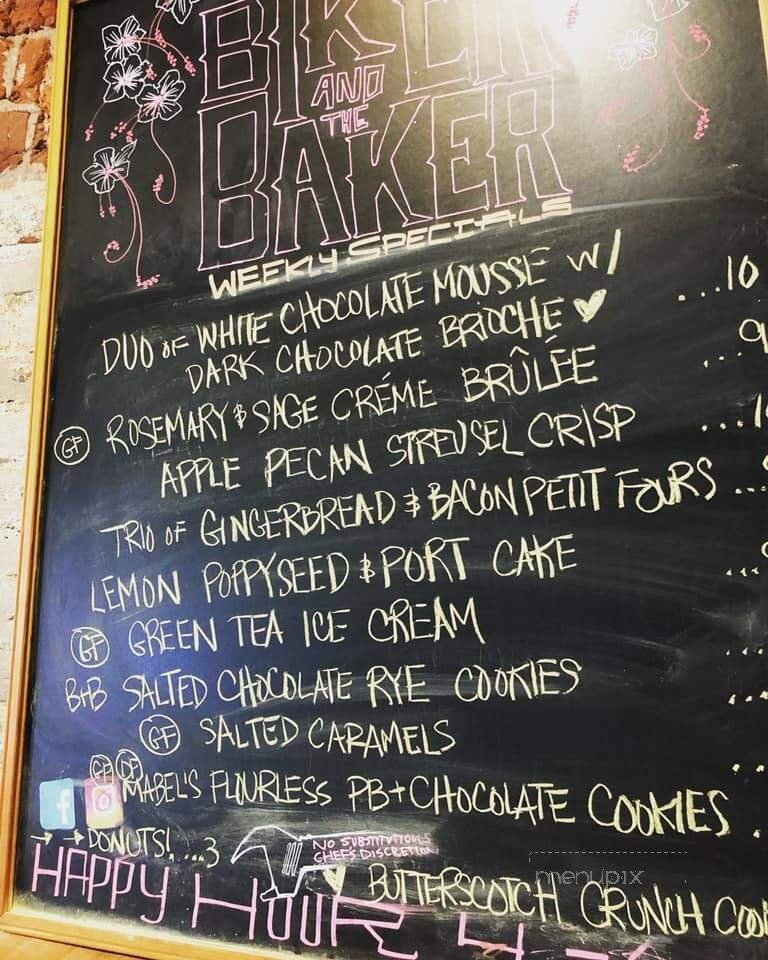 BIKER
AND
THE
BAKER
WEEKLY SPECIALS
DUO OF WHITE CHOCOLATE MOUSSE W/
DARK CHOCOLATE BRIOCHE ...10
GF ROSEMARY & SAGE CRÉME BRÛLÉE ...9
APPLE PECAN STREUSEL CRISP
TRIO OF GINGERBREAD & BACON PETIT FOURS ...
LEMON POPPYSEED & PORT CAKE ...
GF GREEN TEA ICE CREAM ...
B+B SALTED CHOCOLATE RYE COOKIES ...
GF SALTED CARAMELS
GF DF
MABEL'S FLOURLESS PB+CHOCOLATE COOKIES
→ → DONUTS! ....3
NO SUBSTITUTIONS
CHEF'S DISCRETION
BUTTERSCOTCH CRUNCH
HAPPY HOUR 4-
menupix